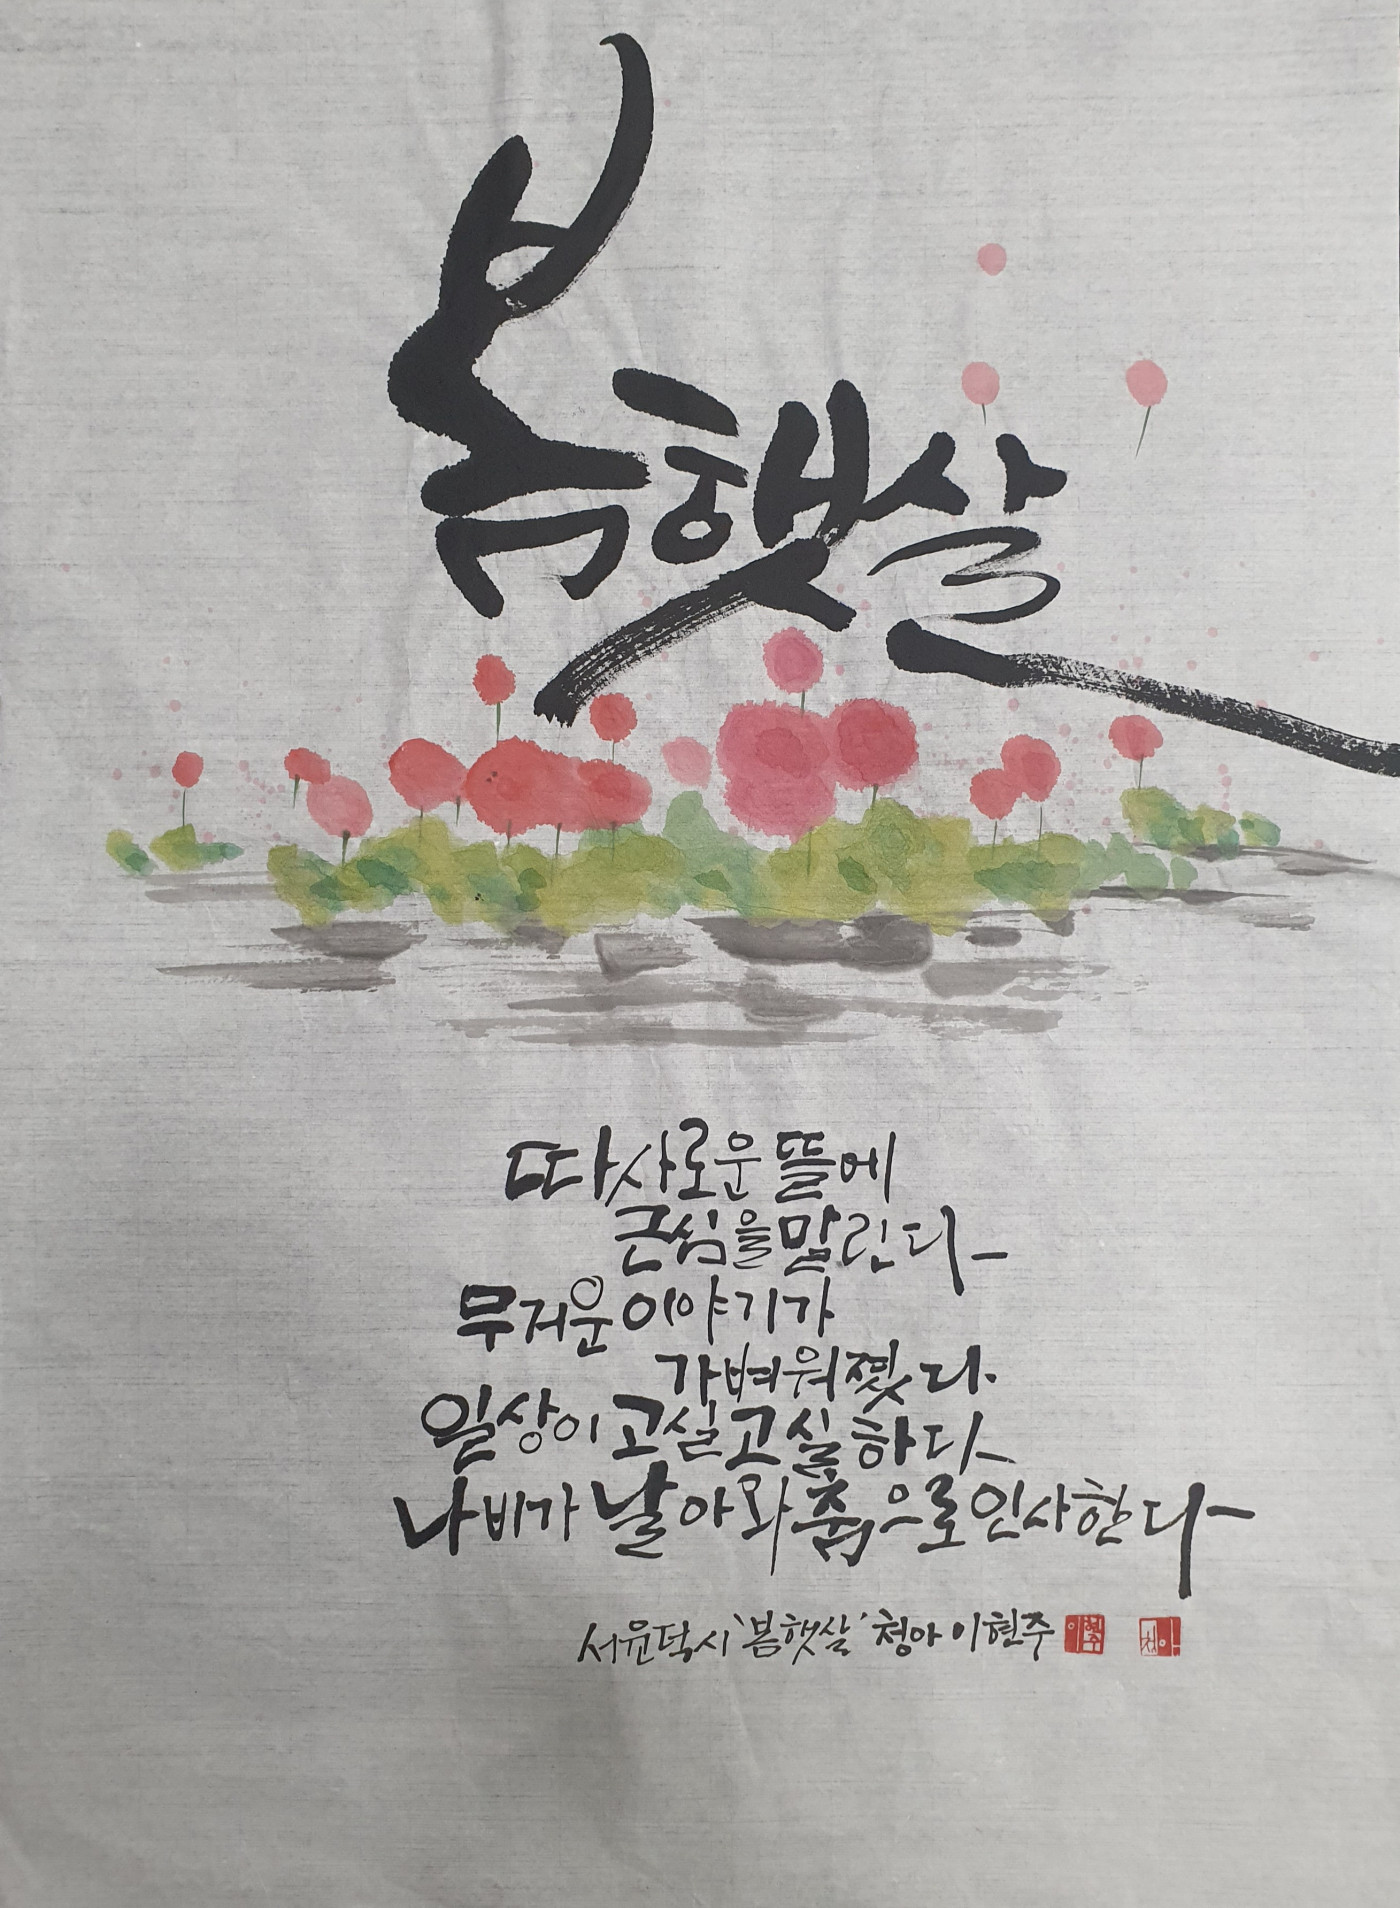 봄햇살
따사로운 뜰에
근심을 말린다
무거운 이야기가
가벼워졌다.
일상이 고실고실하다
나비가 날아와 춤으로 인사한다
서윤덕시 '봄햇살' 청아 이현주 이현주 청아